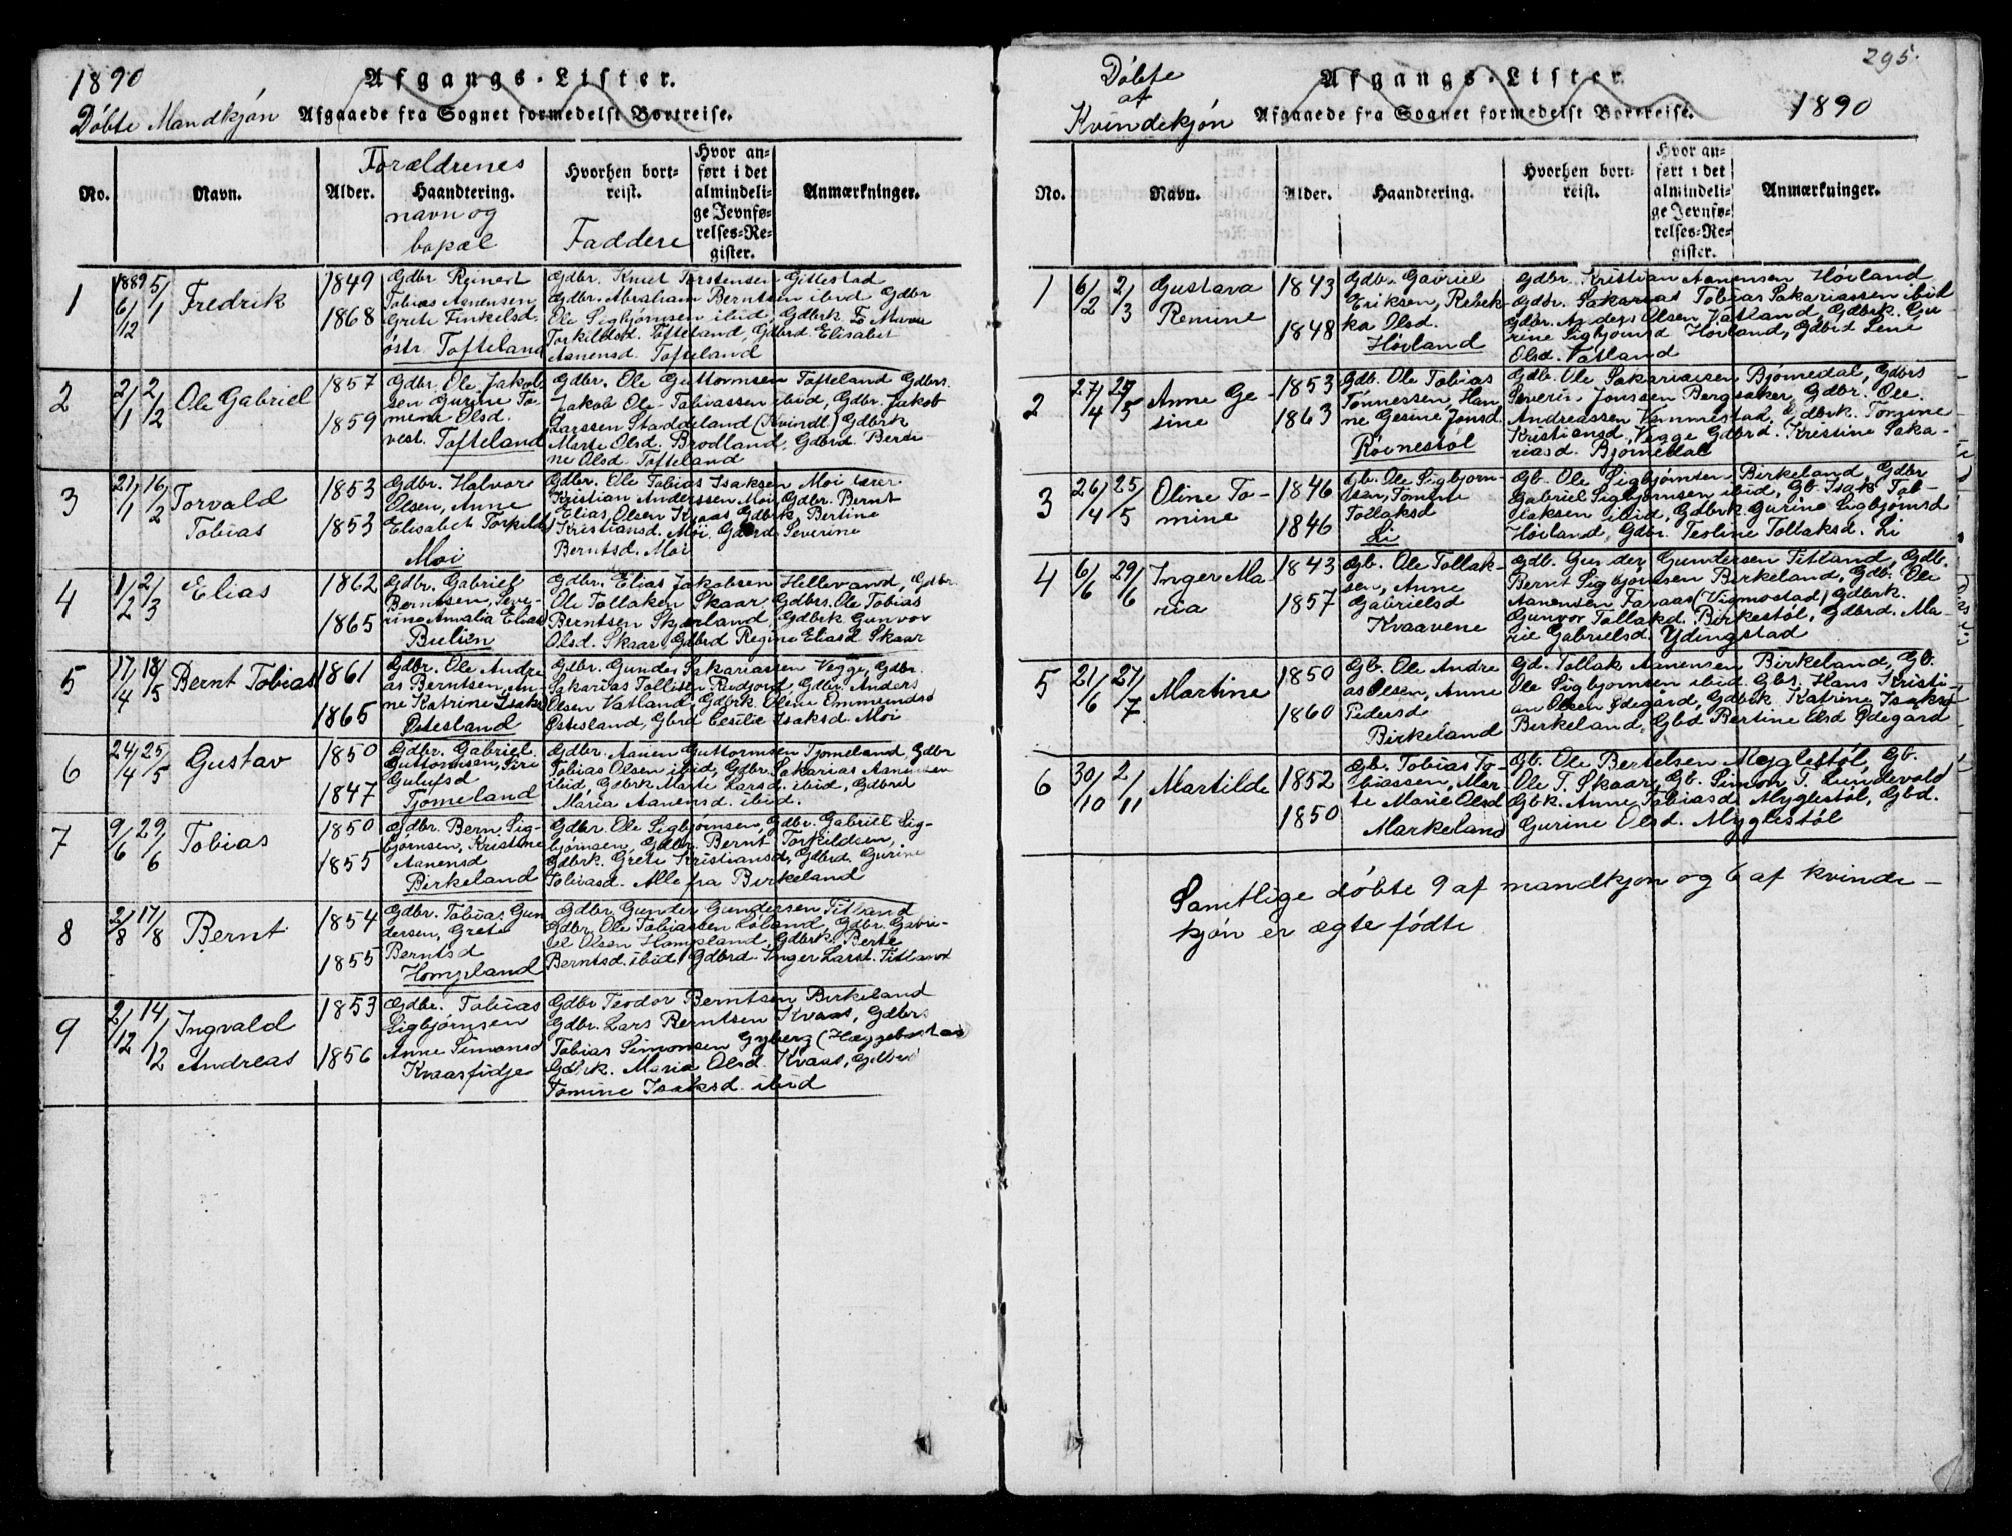 1890
Afgangs-Lister.
Døbte Mandkjøn Afgaaede fra Sognet formedelst Bortreise.
No.
Navn.
Alder.
Forældrenes
Haandtering.
navn og
bopæl
Hvorhen bort-
reist.
Faddere
Hvor an-
ført i det
almindeli-
ge Jevnfø-
relses-Re-
gister.
Anmærkninger.
1
1889 5/1
6/12
Fredrik
1849
1868
Gdbr Reinert
Tobias Aanensen
Grete Finkelsd.
østr. Tofteland
Gdbr. Knut Torstensen Gittestad
Gdbr. Abraham Berntsen ibid Gdbr
Ole Sigbjørnsen ibid, Gdbrk
Torkildsd. Tofteland, Gdbrd Elisabet
Aanensd. Tofteland
2
2/1 2/2
Ole Gabriel
1857
1859
Gdbr. Ole Jakob-
sen Gurine To-
mine Olsd.
vest. Tofteland
Gdbr. Ole Guttormsen Tofteland Gdbrs.
Jakob Ole Tobiassen ibid, Gdbr. Jakob
Larssen Skaddeland (Kvindl.) Gdbrk
Marte Olsd. Brodland, Gdbrd. Berti-
ne Olsd. Tofteland
3
21/1 16/2
Torvald
Tobias
1853
1853
Gdbr. Halvor
Olsen, Anne
Elisabet Torkilds
Moi
Gdbr. Ole Tobias Isaksen Moi
Kristian Anderssen Moi, Gdbr. Bernt
Elias Olsen Kvaas Gdbrk Bertine
Kristiansd. Moi. Gdbrd. Severine
Berntsd. Moi
4
1/2 2/3
Elias
1862
1865
Gdbr. Gabriel
Berntsen, Seve-
rine Amalia Elias
Bulien
Gdbr. Elias Jakobsen Hellevand, Gdbr.
Ole Tollaksen Skaar Gdbrs. Ole Tobias
Berntsen Skjerland, Gdbrk Gunvor
Olsd. Skaar, Gdbrd Regine Eliasd Skaar
5
17/4 18/5
Bernt Tobias
1861
1865
Gdbr. Ole Andre
as Berntsen, An-
ne Katrine Isaks
Østesland
Gdbr. Gunder Sakariassen Vegge, Gdbr.
Sakarias Tollisen Rødjord, Gdbr. Anders
Olsen Vatland, Gdbrk. Oline Ommundsd
Østesland, Gbrd Cecilie Isaksd. Moi
6
24/4 25/5
Gustav
1850
1847
Gdbr. Gabriel
Guttormsen, Siri
Gulufsd
Tjomeland
Gdbr. Aanen Guttormsen Tjomeland Gdbr
Tobias Olsen ibid, Gdbr. Sakarias Aanensen
ibid, Gdbrk Marte Larsd. ibid, Gdbrd
Maria Aanensd. ibid.
7
9/6 29/6
Tobias
1850
1855
Gdbr. Bern. Sig-
bjørnsen, Kristine
Aanensd
Birkeland
Gdbr. Ole Sigbjørnsen, Gdbr. Gabriel Sig-
bjørnsen, Gdbr. Bernt Torkildsen,
Gdbrk. Grete Kristiansd, Gdbrd. Gurine
Tobiasd. Alle fra Birkeland
8
2/8 17/8
Bernt
1854
1855
Gdbr. Tobias Gun
dersen, Grete
Berntsd
Hompland
Gdbr Gunder Gundersen Titland
Gdbr. Ole Tobiassen Løland, Gdbr. Gabri-
el Olsen Hompland, Gdbrk. Berte
Berntsd. ibid, Gdbrd. Inger Larsd. Titland
9
2/12 14/12
Ingvald
Andreas
1853
1856
Gdbr. Tobias
Sigbjørnsen
Anne Simonsd
Kvaasfidje
Gdbr Teodor Berntsen Birkeland
Gdbr. Lars Berntsen Kvaas, Gdbrs
Tobias Simonsen Gyberg (Hæggebostad
Gdbrk. Maria Olsd. Kvaas, Gdbrd
Tomine Isaksd. ibid
295.
Døbte
af
Kvindekjøn
Afgangs-Lister.
Afgaaede fra Sognet formedelst Bortreise.
1890
No.
Navn.
Alder.
Haandtering.
Hvorhen bort-
reist.
Hvor an-
ført i det
almindeli-
ge Jevnfø-
relses-Re-
gister.
Anmærkninger.
1
6/2 2/3
Gustava
Remine
1843
1848
Gdb. Gabriel
Eriksen, Rebek-
ka Olsd.
Høiland
Gdbr. Kristian Aanensen Høiland
Gdbr. Sakarias Tobias Sakariassen ibid
Gdbr. Anders Olsen Vatland, Gdbrk. Gu-
rine Sigbjørnsd Høiland, Gdbrd Lene
Olsd. Vatland
2
27/4 27/5
Anne Ge-
sine
1853
1863
Gdb. Ole Tobias
Tønnessen, Han
ne Gesine Jonsd.
Røinestøl
Gdb. Ole Sakariassen Bjømedal, Gdbrs
Severin Jonssen Bergsaker, Gdbr. Ole
Andreassen Vemmestad, Gdbrk. Tomine
Kristiansd, Vegge Gdbrd. Kristine Saka-
riasd. Bjømedal
3
26/4 25/5
Oline To-
mine
1846
1846
Gb. Ole Sigbjørn-
sen, Tomine
Tollaksd
Li
Gb. Ole Sigbjørnsen Birkeland, Gdbr
Gabriel Sigbjørnsen ibid, Gb Isak Tob-
iaksen ibid, Gdbrk Gurine Sigbjørnsd
Høiland, Gdbr. Teoline Tollaksd. Li
4
6/6 29/6
Inger Ma-
ria
1843
1857
Gb. Ole Tollak-
sen, Anne
Gabrielsd
Kvaavene
Gdb. Gunder Gundersen Titland, Gdb.
Bernt Sigbjørnsen Birkeland, Gdb. Ole
Aanensen Faraas (Vigmostad) Gdbrk.
Gunvor Tollaksd. Birkestøl, Gdbrd. Ma-
rie Gabrielsd. Ydingstad
5
21/6 27/7
Martine
1850
1860
Gb. Ole Andre
as Olsen, Anne
Pedersd
Birkeland
Gd. Tollak Aanensen Birkeland, Gb.
Ole Sigbjørnsen ibid. Gbs. Hans Kristi-
an Olsen Ødegård, Gdbrk Katrine Isaksd
Birkeland, Gbd Bertine Elsd Ødegard
6
30/10 2/11
Martilde
1852
1850
Gb. Tobias To-
biassen, Mar-
te Marie Olsd
Markeland
Gb. Ole Bertelsen Myglestøl, Gb.
Ole T. Skaar, Gb. Simon T. Lindevold
Gbk. Anne Tobiasd. Myglestøl, Gbd.
Gurine Olsd. Myglestøl
Samtlige døbte 9 af mandkjøn og 6 af kvinde-
kjøn er ægte fødte